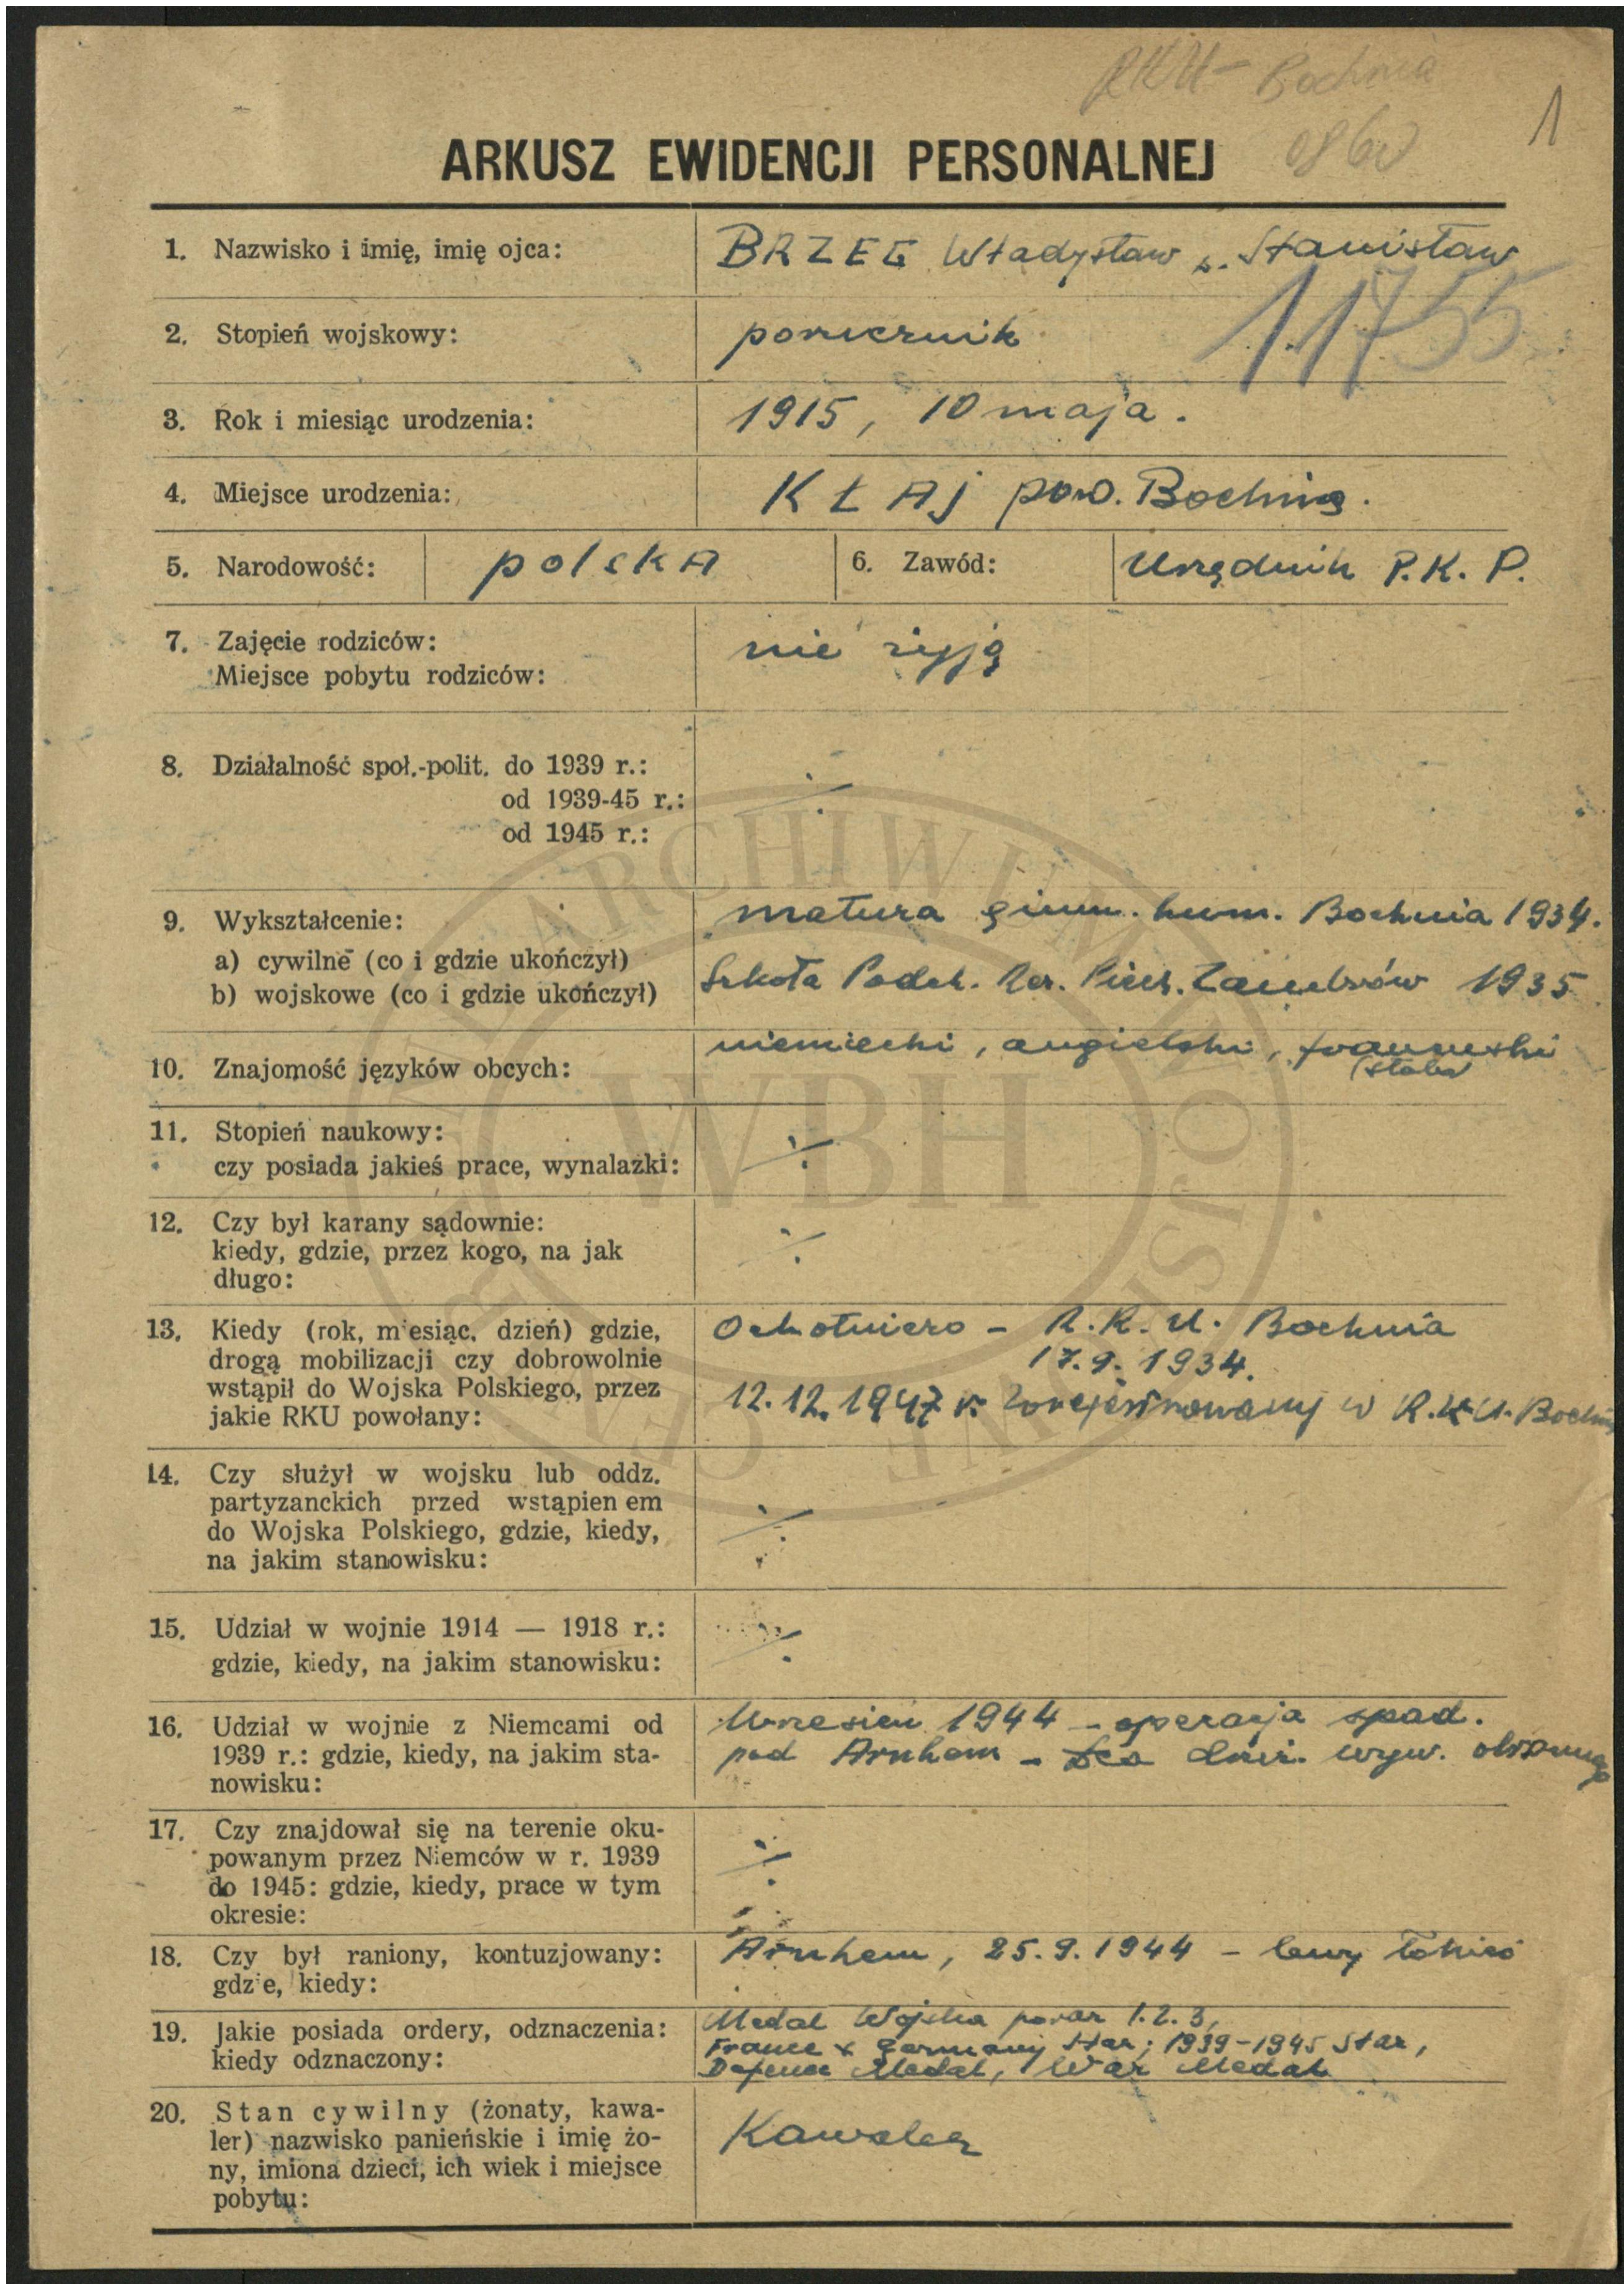 RKU - Bochnia
1
ARKUSZ EWIDENCJI PERSONALNEJ
1. Nazwisko i imię, imię ojca: BRZEG Władysław s. Stanisław
11755
2. Stopień wojskowy: porucznik
3. Rok i miesiąc urodzenia: 1915, 10 maja.
4. Miejsce urodzenia: KŁAj pow. Bochnia.
5. Narodowość: polskA 6. Zawód: Urzędnik P.K.P.
7. Zajęcie rodziców: nie żyją
Miejsce pobytu rodziców:
8. Działalność społ.-polit. do 1939 r.:
od 1939-45 r.:
od 1945 r.:
9. Wykształcenie: matura gimn. hum. Bochnia 1934.
a) cywilne (co i gdzie ukończył)
b) wojskowe (co i gdzie ukończył) Szkoła Podch. Rez. Piech. Zambrów 1935
10. Znajomość języków obcych: niemiecki, angielski, francuski
(słabo)
11. Stopień naukowy:
czy posiada jakieś prace, wynalazki:
12. Czy był karany sądownie:
kiedy, gdzie, przez kogo, na jak
długo:
13. Kiedy (rok, miesiąc, dzień) gdzie, Ochotniczo - R.K.U. Bochnia
drogą mobilizacji czy dobrowolnie 17.9.1934.
wstąpił do Wojska Polskiego, przez 12.12.1947 r. zarejestrowany w R.K.U. Bochnia
jakie RKU powołany:
14. Czy służył w wojsku lub oddz.
partyzanckich przed wstąpien em
do Wojska Polskiego, gdzie, kiedy,
na jakim stanowisku:
15. Udział w wojnie 1914 — 1918 r.:
gdzie, kiedy, na jakim stanowisku:
16. Udział w wojnie z Niemcami od Wrzesień 1944 - operacja spad.
1939 r.: gdzie, kiedy, na jakim sta- pod Arnhem -
nowisku:
17. Czy znajdował się na terenie oku-
powanym przez Niemców w r. 1939
do 1945: gdzie, kiedy, prace w tym
okresie:
18. Czy był raniony, kontuzjowany: Arnhem, 25.9.1944 - lewy łokieć
gdzie, kiedy:
19. Jakie posiada ordery, odznaczenia: Medal Wojska po raz 1.2.3,
kiedy odznaczony: France & Germany Star; 1939-1945 Star,
Defence Medal, War Medal
20. Stan cywilny (żonaty, kawa- Kawaler
ler) nazwisko panieńskie i imię żo-
ny, imiona dzieci, ich wiek i miejsce
pobytu:
CENTRALNE ARCHIWUM WOJSKOWE
WBH